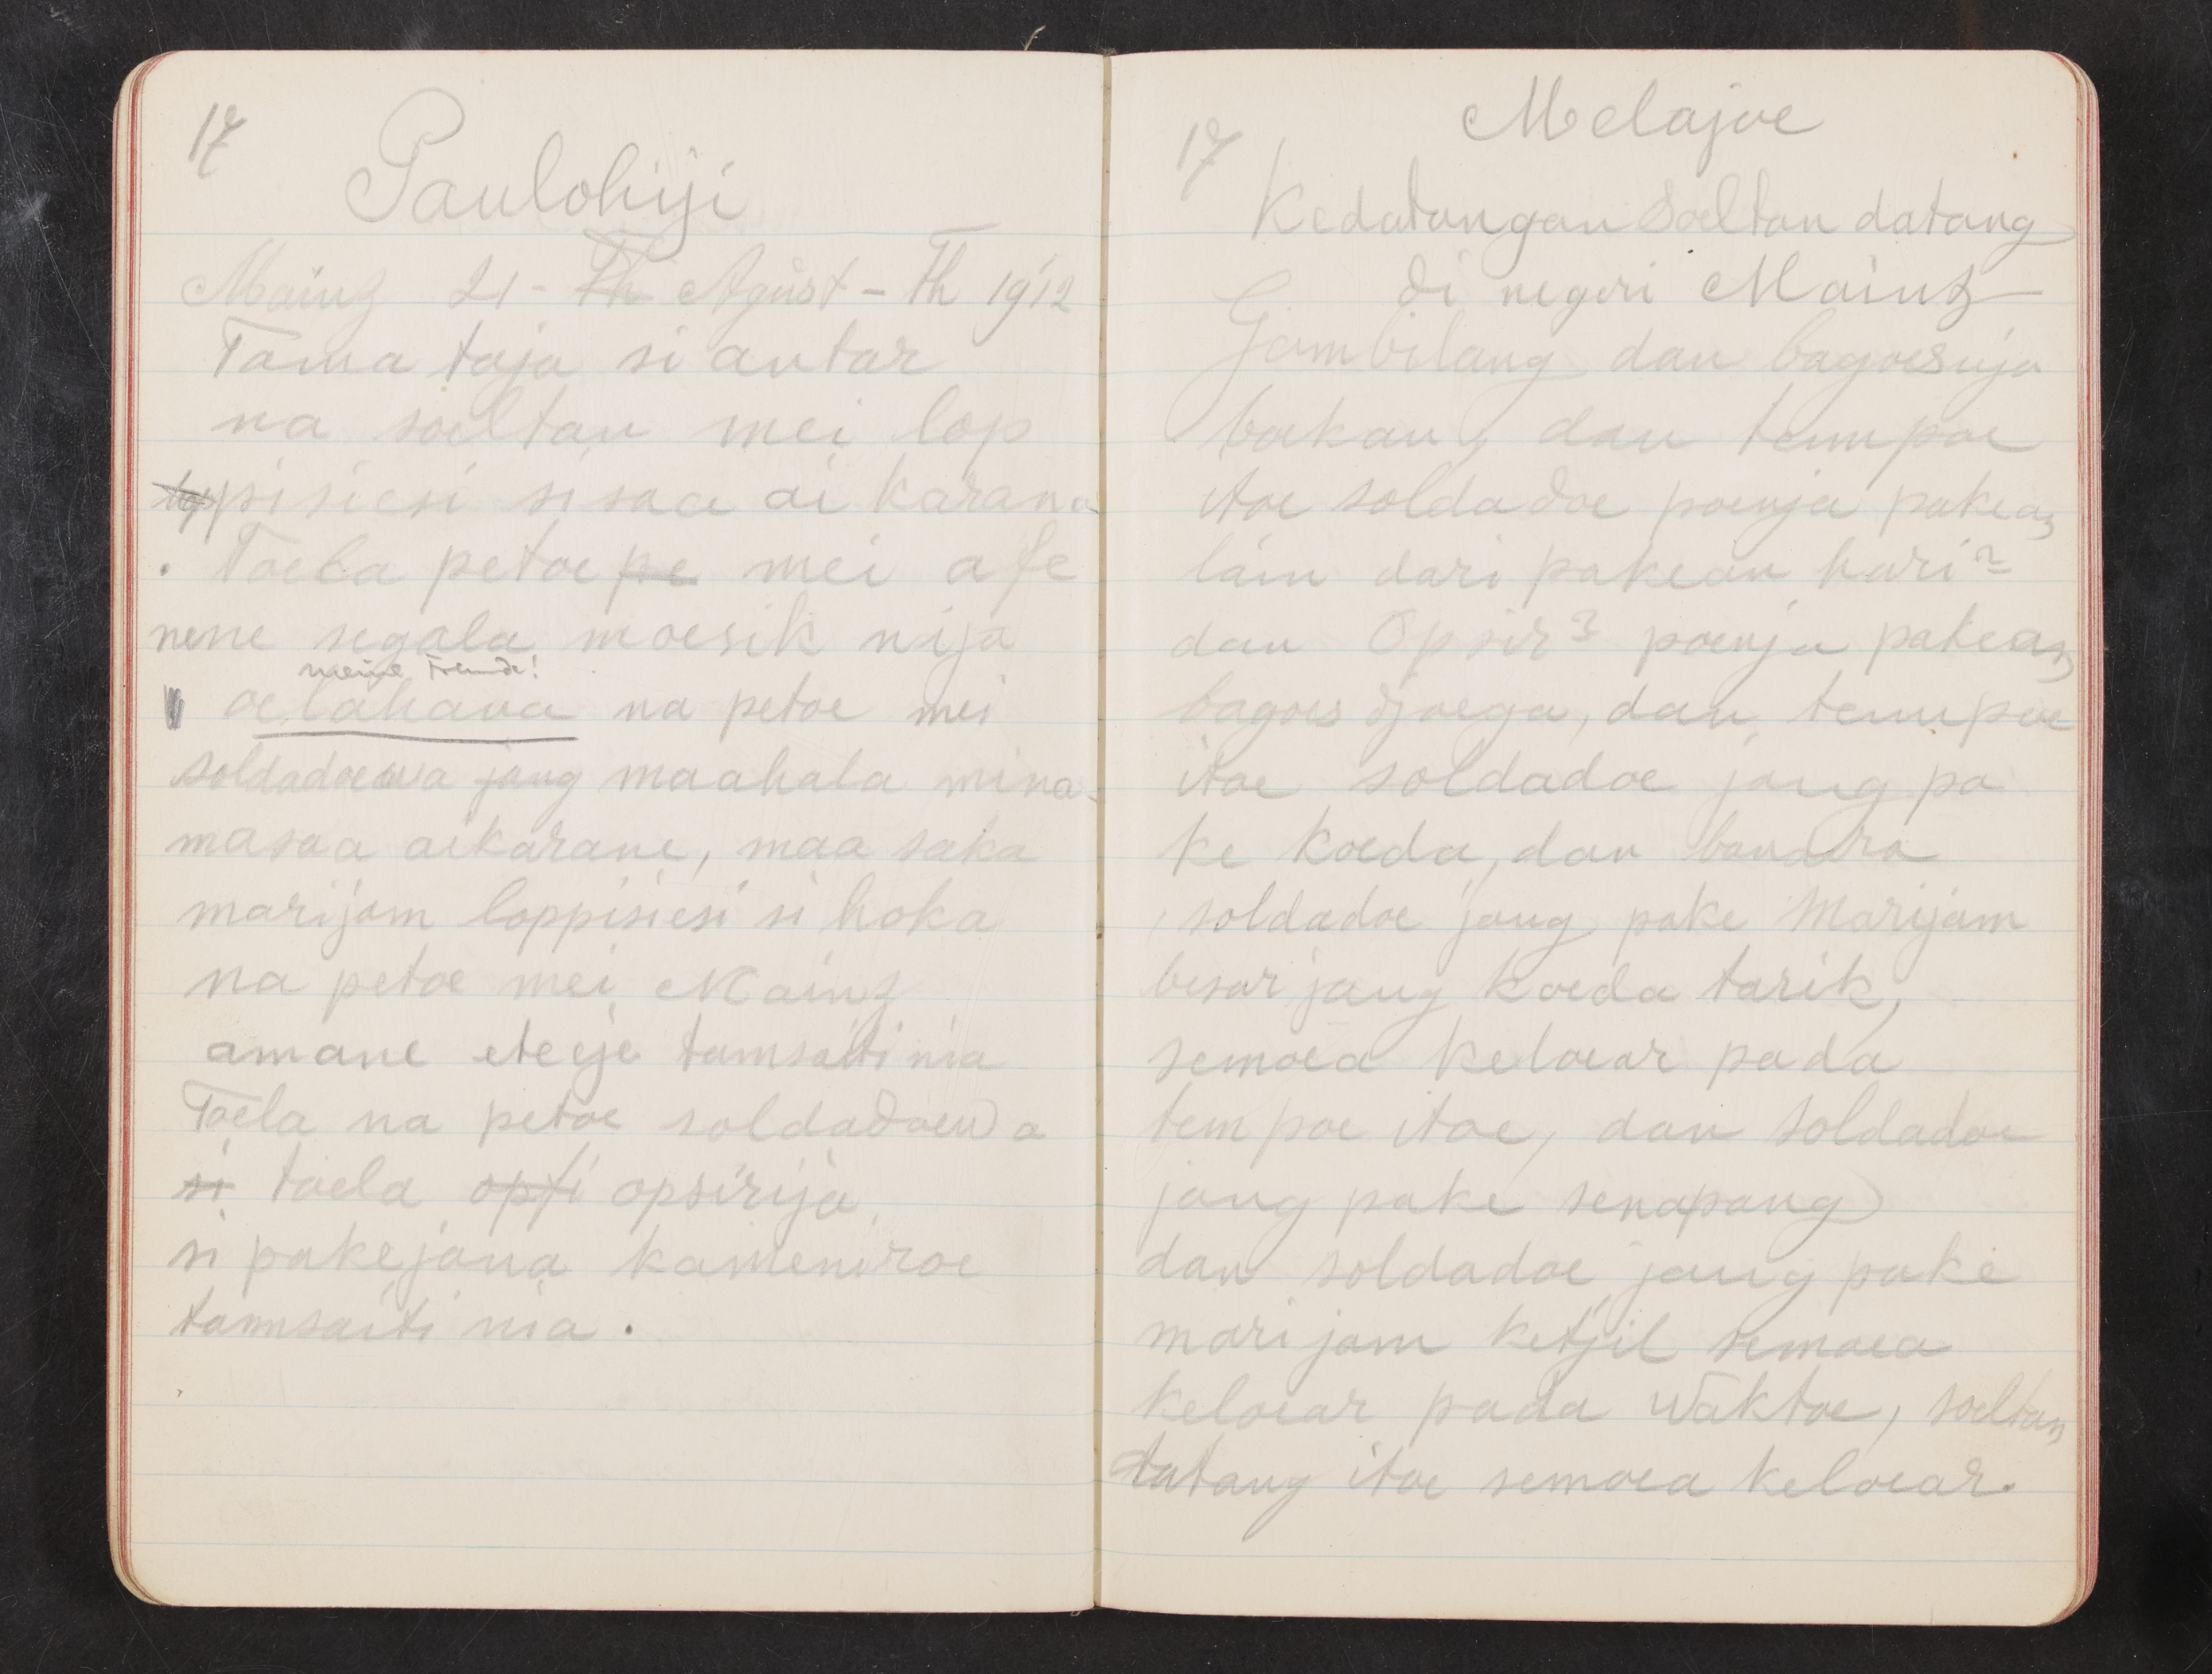 17
Paulohiji
Mainz 21 - Th Agust - Th 1912
Tama taja si antar
na soeltan mei lop
pisiesi si saa ai karana
. Toela petoe pe mei afe
nene segala moesik nija
meine Freunde!
oelahava na petoe mei
soldadoewa jang maahala mina
masaa aikarane, maa saka
marijam loppisiesi si hoka
na petoe mei Mainz
amane eteije tamsaiti nia
Toela na petoe soldadoewa
si toela opfi opsirija
si pakejana kameniroe
tamsaiti nia .
17
Melajoe
Kedatangan Soeltan datang
di negeri Mainz
Gambilang dan bagoesnja
boekan, dan tempoe
itoe soldadoe poenja pakean
lain dari pakean hari2
dan Opsir3 poenja pakean
bagoes djoega, dan tempoe
itoe soldadoe jang pa
ke koeda, dan bandra
soldadoe jang pake Marijam
besar jang koeda tarik,
semoea keloear pada
tempoe itoe, dan soldadoe
jang pake senapang
dan soldadoe jang pake
marijam ketjil semoea
keloear pada waktoe, soeltan
datang itoe semoea keloear.